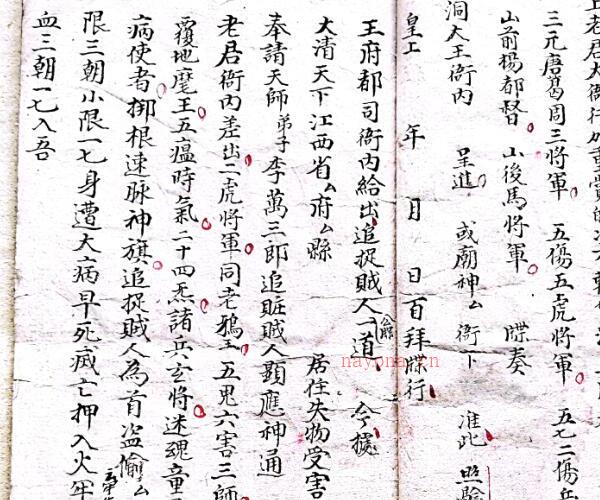 上老君大
三元唐葛周三將軍 五傷五虎將軍 五七二傷兵
山前楊都督 山後馬將軍 牒奏
洞大王衙內 呈進 或廟神厶衙下 准此 照驗
皇上 年 月 日百拜牒行
王府都司衙內給出追捉賊人一道 今據
大清天下江西省厶府厶縣 居住失物受害
奉請天師弟子李萬三郎追賍賊人顕應神通
老君衙內差出二虎將軍同老鴉王五鬼六害三師
覆地魔王五瘟時氣二十四炁諸兵玄將迷魂童
病使者挷根速脉神旗追捉賊人為首盜偷厶
限三朝小限一七身遭大病早死滅亡押入火牢
血三朝一七入吾
nayona.cn